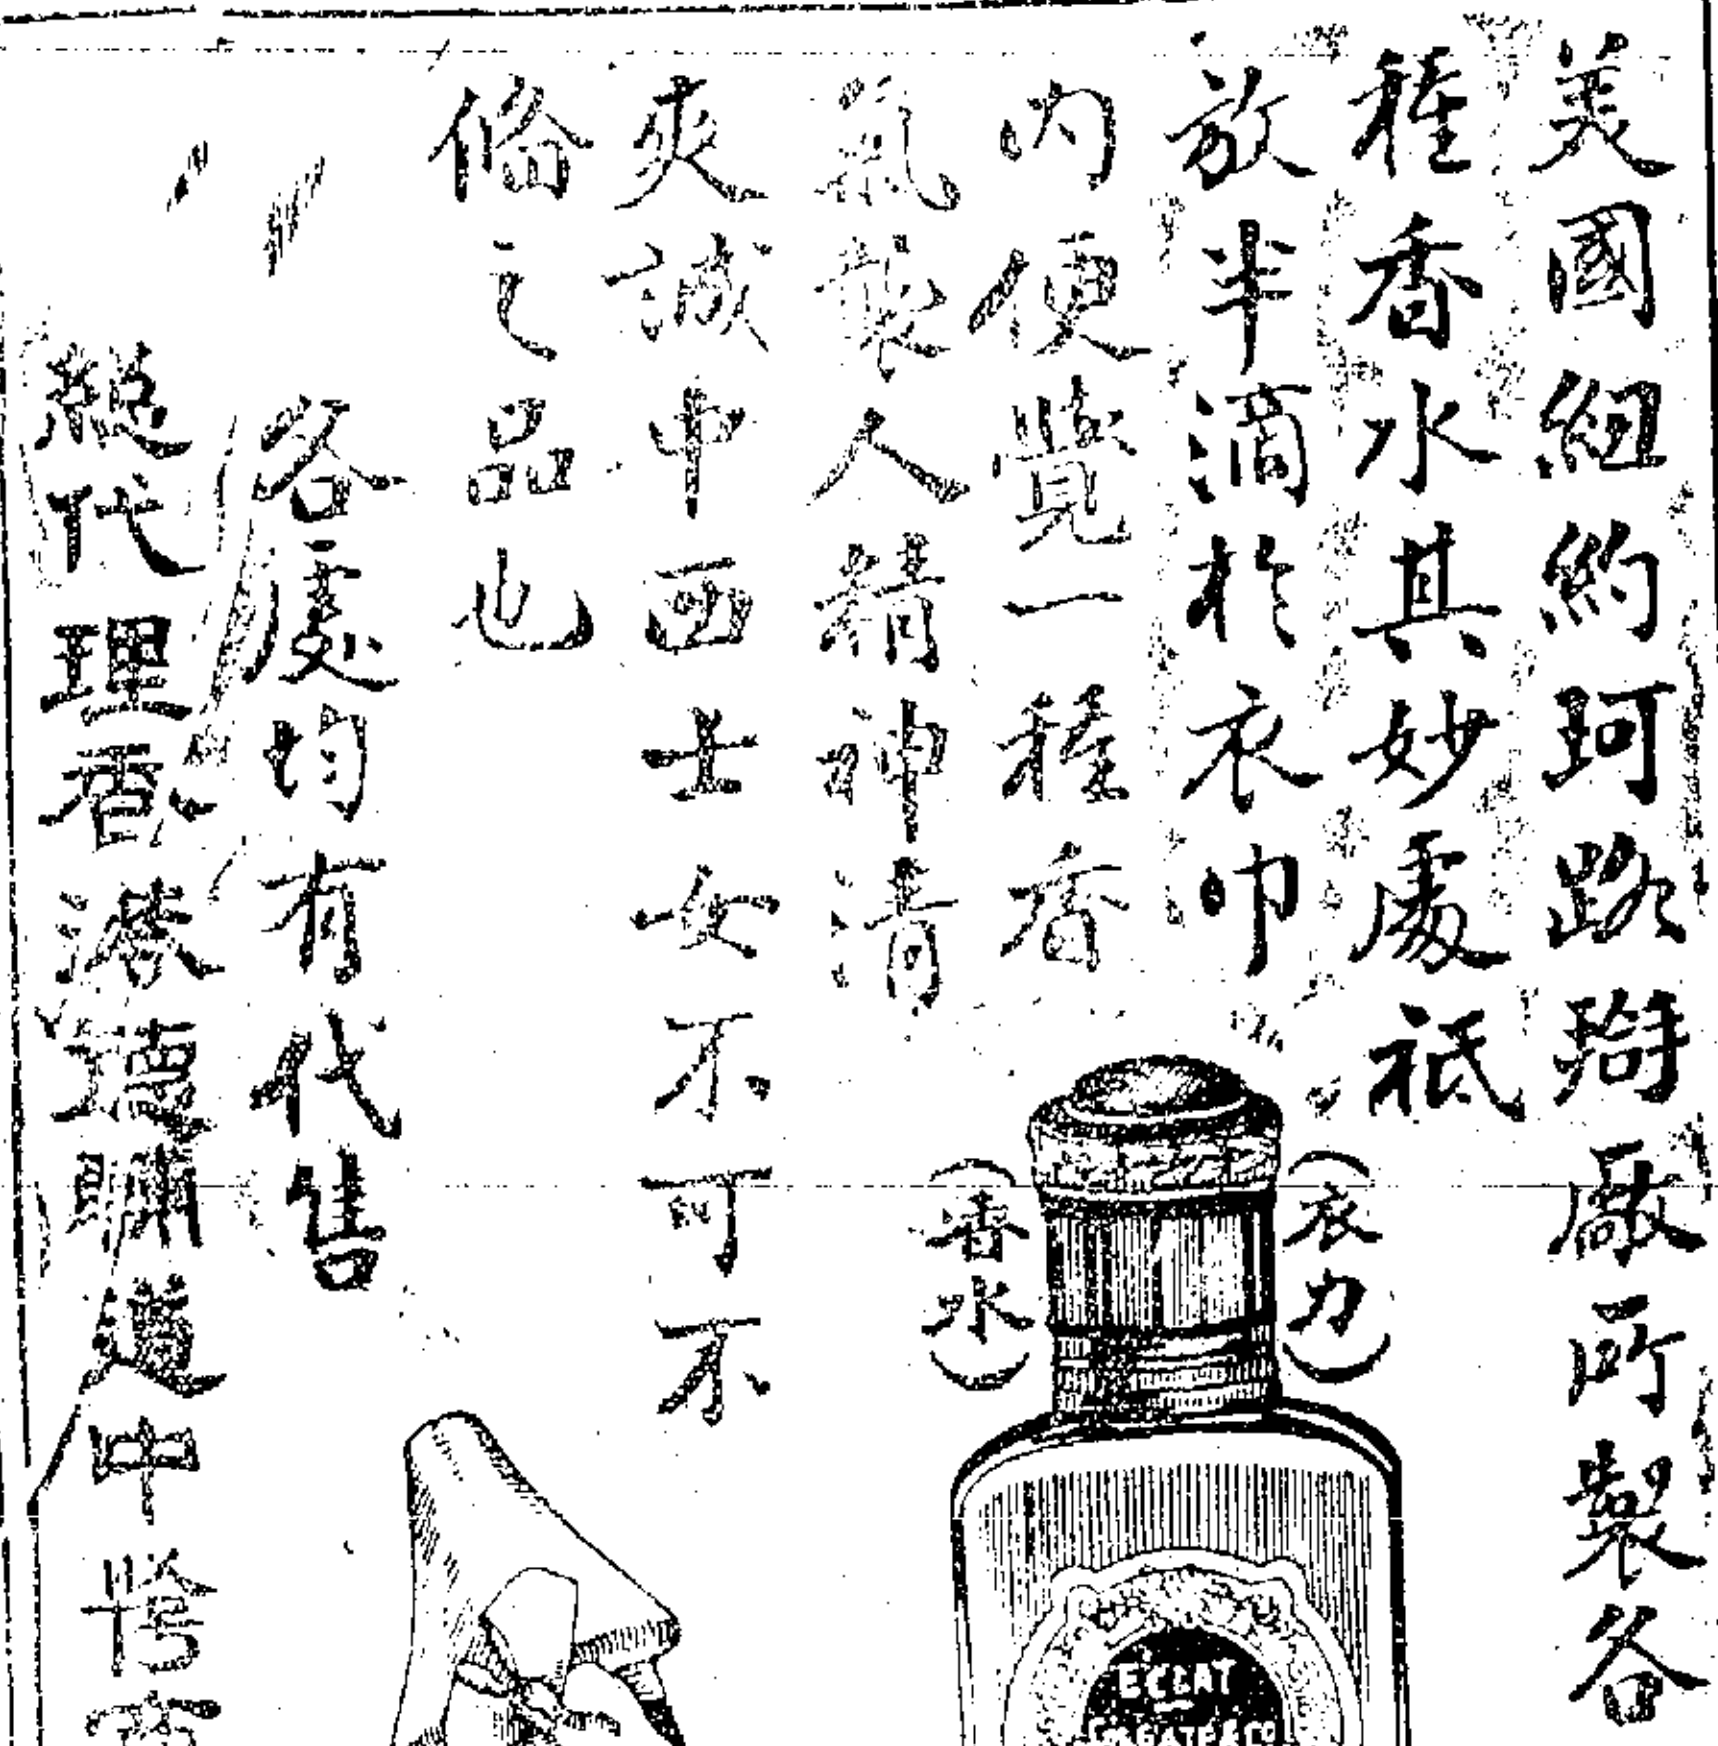 美國紐約珂路搿厰所製各
種香水其妙處祗
放半滴於衣巾
内便覺一種香
氣襲人精神清
爽誠中西士女不可不
俻之品也
各處均有代售
總代理香港德輔道中
(衣力)
(香水)
ECLAT
COLGATE & CO